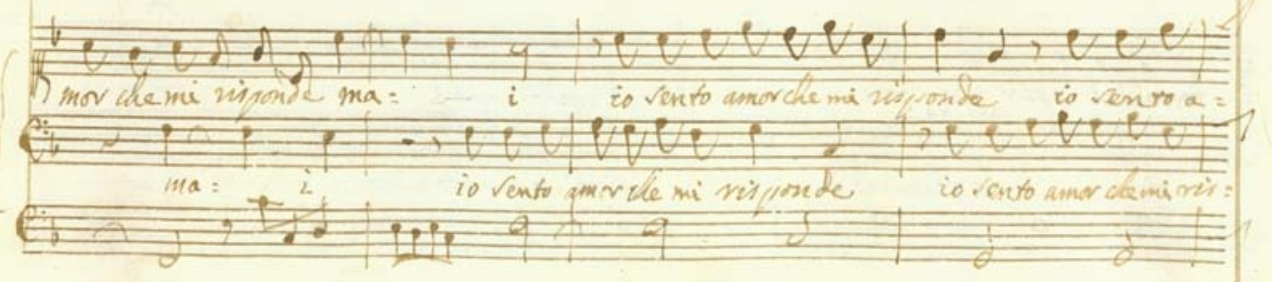 mor che mi risponde ma= i io sento amor che mi risponde io sento a=
ma= i io sento amor che mi risponde io sento amor che mi ris=